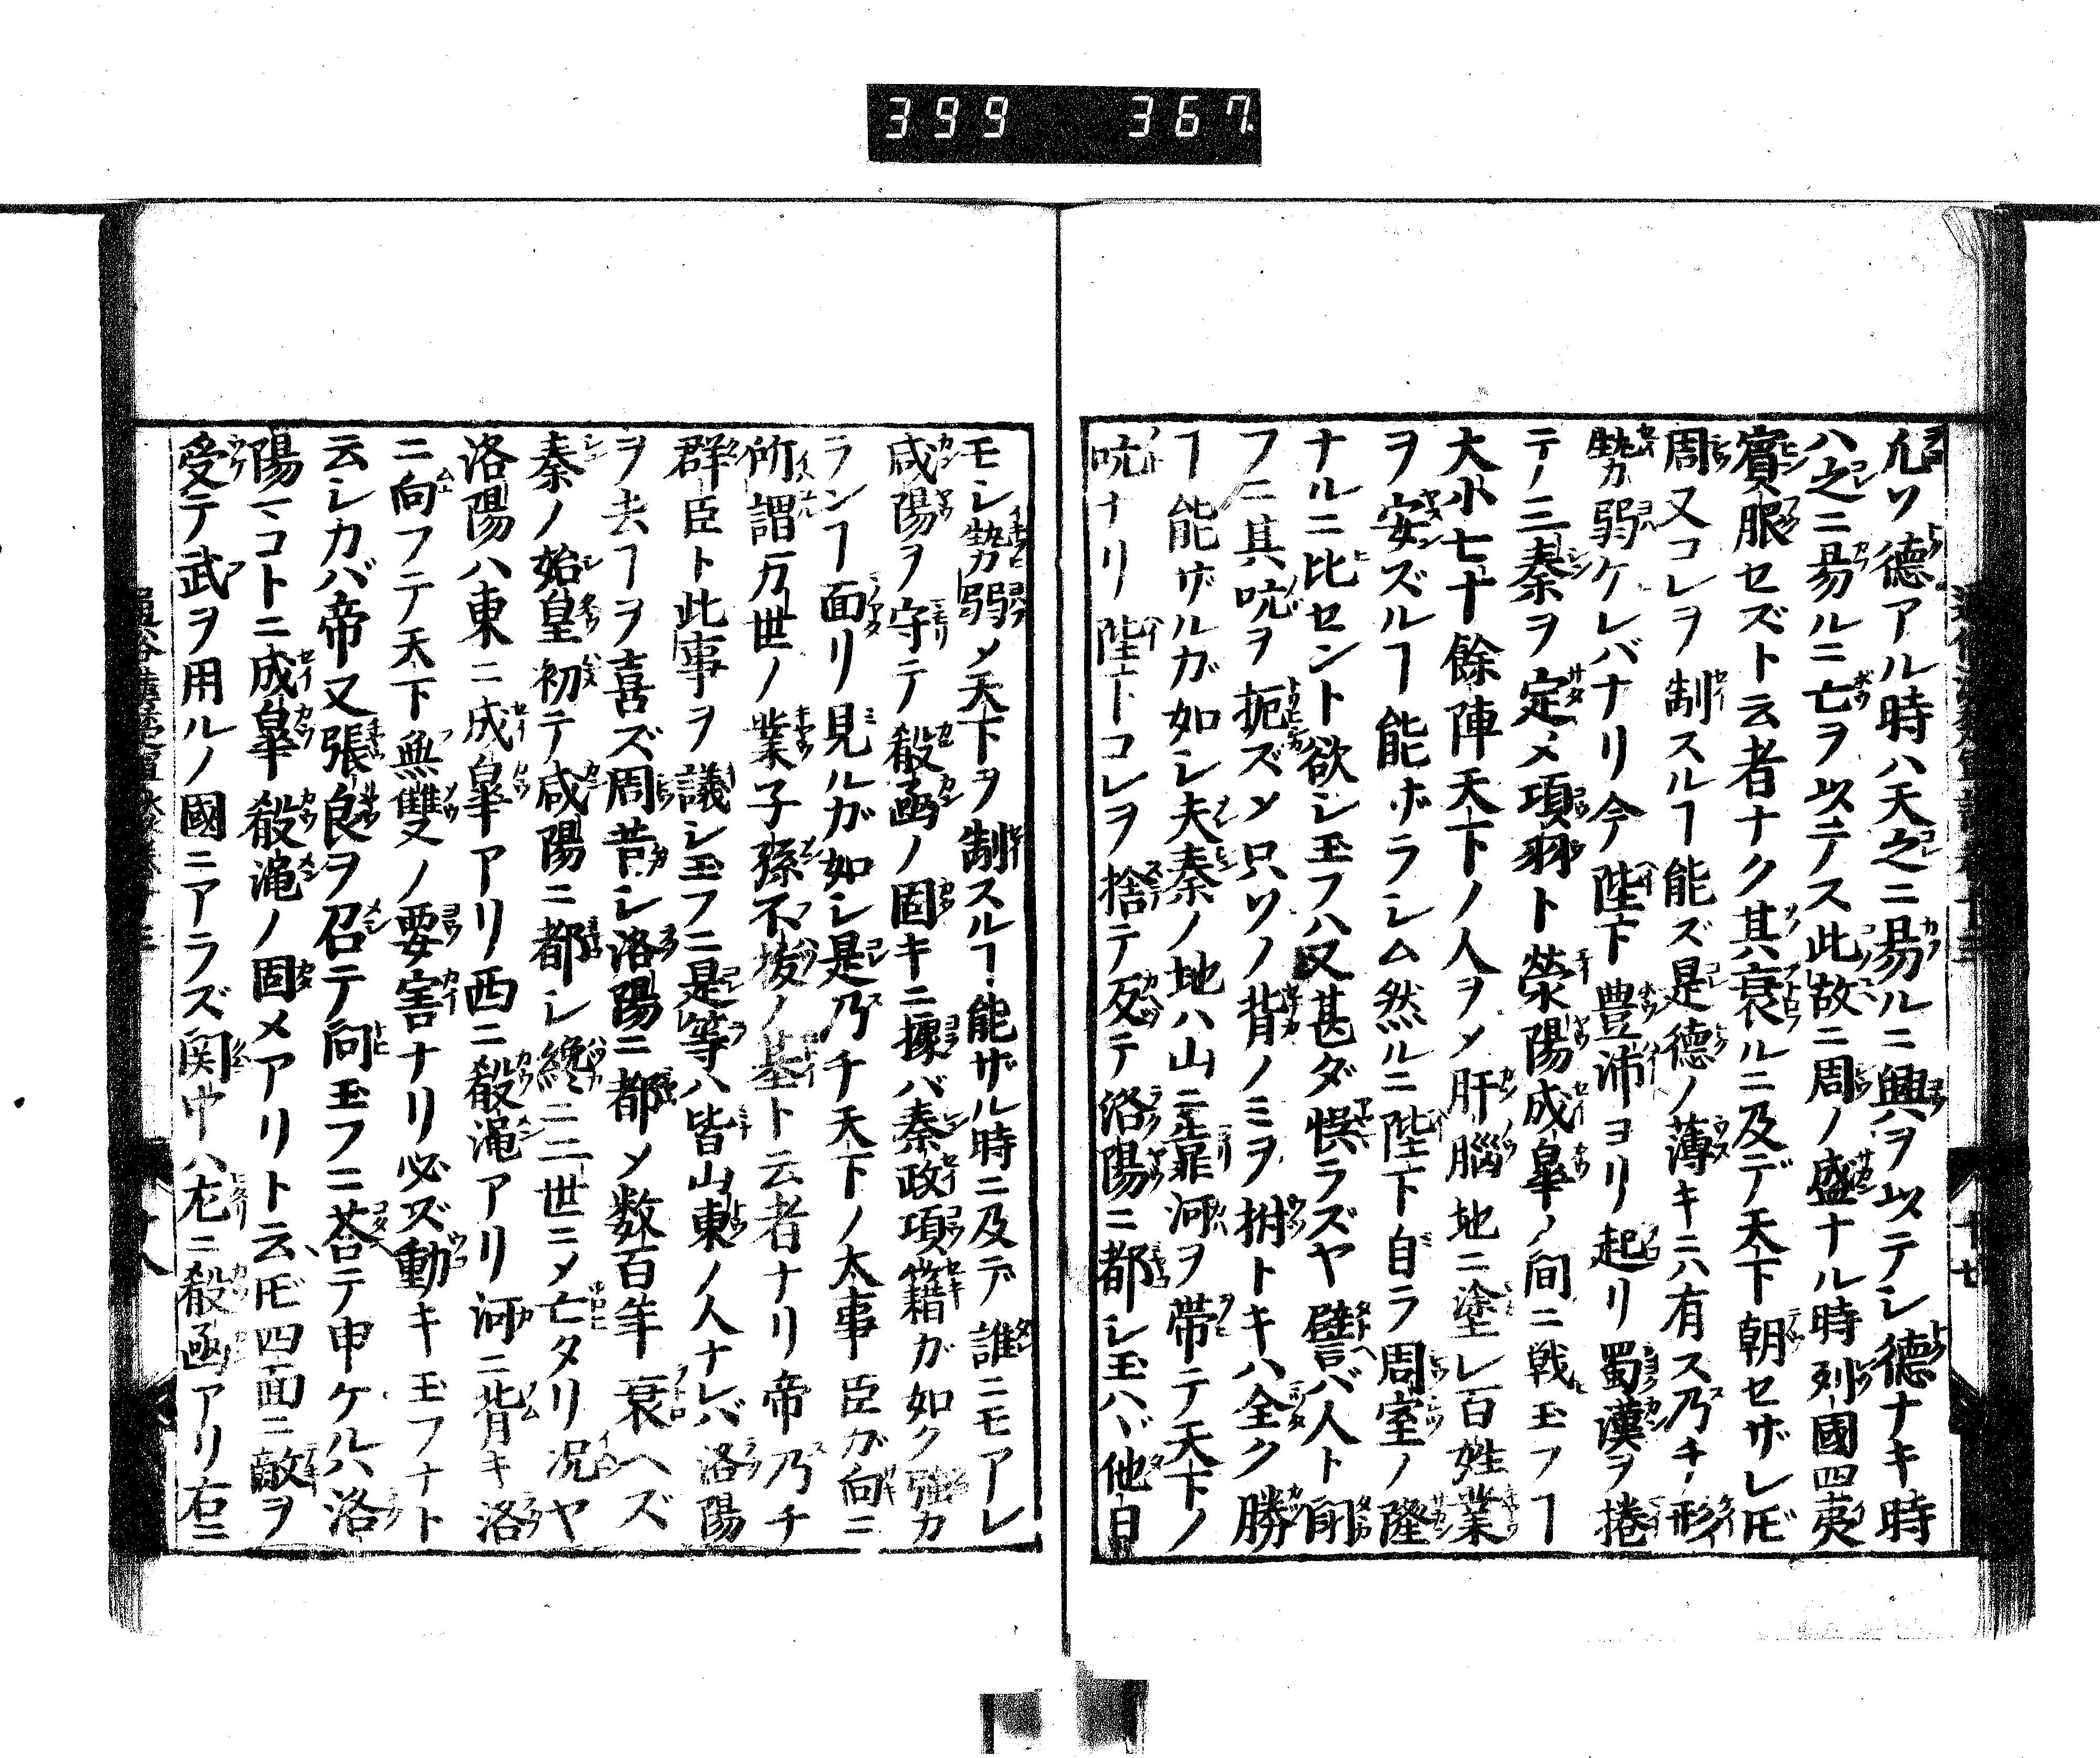 399 367
凡ソ德アル時ハ天之ニ昜ルニ興ヲ以テシ德ナキ時
ハ之ニ昜ルニ亡ヲ以テス此故ニ周ノ盛ナル時列國四夷
賓服セズト云者ナク其衰ルニ及デ天下朝セザレ𪜈
周又コレヲ制スルヿ能ズ是德ノ薄キニハ有ス乃チ形
勢力弱ケレバナリ今陛下豊沛ヨリ起リ蜀漢ヲ捲
テノ三秦ヲ定メ項羽ト荥陽成皐ノ間ニ戦玉フヿ
大小七十餘陣天下ノ人ヲ〆肝腦地ニ塗レ百姓業
ヲ安ズルヿ能ホラシム然ルニ陛下自ラ周室ノ隆
ナルニ比セント欲シ玉フハ又甚ダ悮ラズヤ譬バ人ト
フニ其吭ヲ扼ズソ只ソノ背ノミヲ拊トキハ全ク勝
ヿ能ザルガ如シ夫秦ノ地ハ山ニ靠河ヲ帯テ天下ノ
吭ナリ陛下コレヲ捨テ反テ洛陽ニ都シ玉ハヾ他日
十七
モシ勢弱〆天下ヲ制スルヿ能ザル時ニ及デ誰ニモアレ
咸陽ヲ守テ殽函ノ固キニ據バ秦政項籍ガ如ク強カ
ランヿ面リ見ルガ如シ是乃チ天下ノ大事臣ガ向ニ
所謂万世ノ業子孫不拔ノ基ト云者ナリ帝乃チ
群臣ト此事ヲ議シ玉フニ是等ハ皆山東ノ人ナレバ洛陽
ヲ去ヿヲ喜ズ周昔シ洛陽ニ都〆数百年衰ヘズ
秦ノ始皇初テ咸陽ニ都シ纔ニ二世ニ〆亡タリ况ヤ
洛陽ハ東ニ成皐アリ西ニ殽澠アリ河ニ背キ洛
ニ向フテ天下無雙ノ要害ナリ必ズ動キ玉フナト
云シカバ帝又張良ヲ召テ问玉フニ荅テ申ケルハ洛
陽マコトニ成皐殽澠ノ固メアリト云𪜈四面ニ敵ヲ
受テ武ヲ用ルノ國ニアラズ関中ハ左ニ殽函アリ右ニ